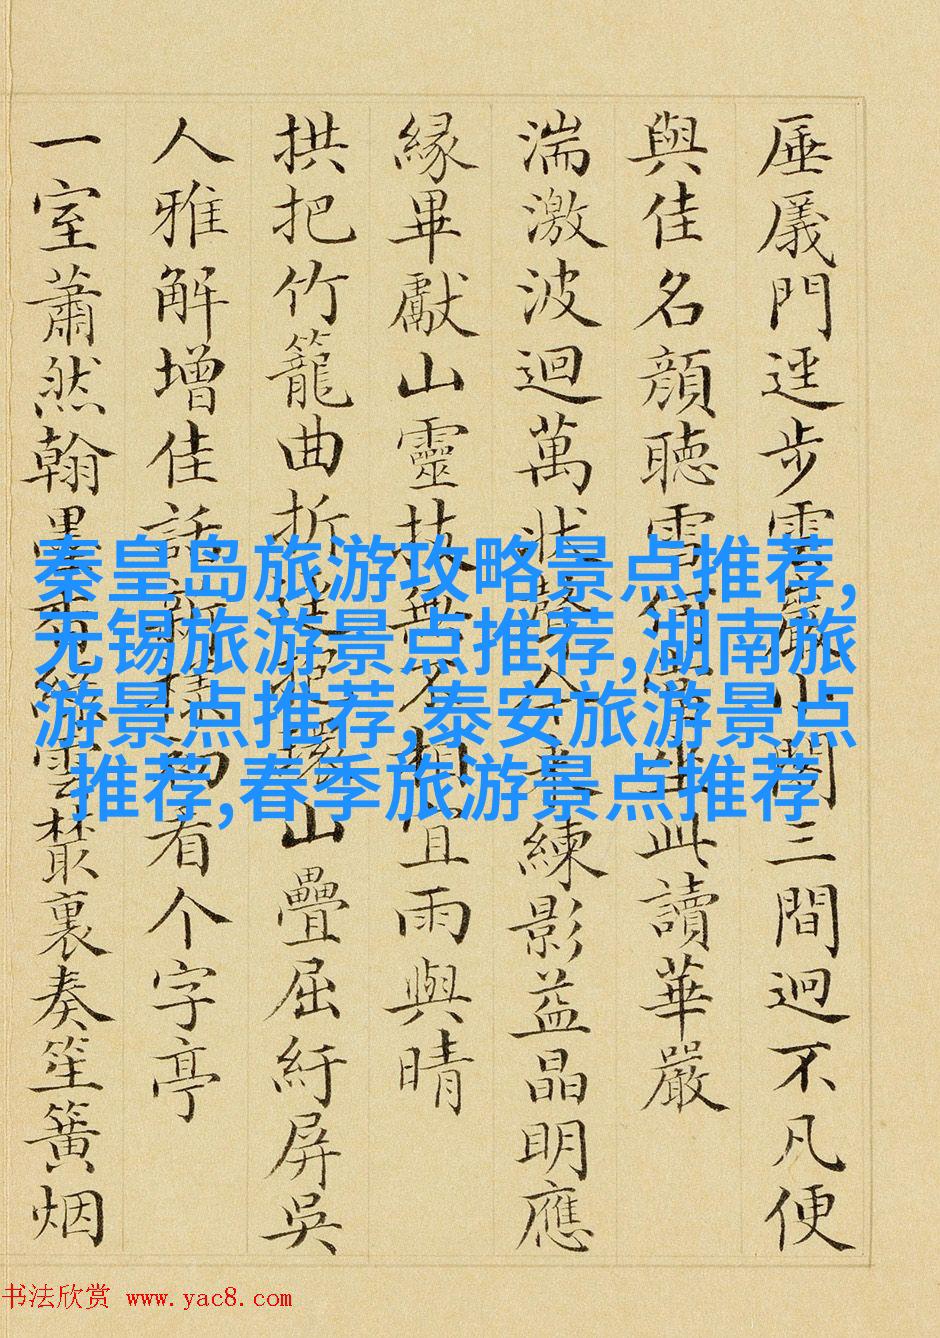 厜㕒門逕步雲巖山閣三間迥不凡便
與佳名顏聽雪何當坐此讀華嚴
湍激波迴萬狀聲人素練影益晶明應
緣畢獻山靈技無不相宜雨與晴
拱把竹籠曲折山疊屈紆屏吳
人雅解增佳話新有个字亭
一室蕭然翰墨香雲叢裏奏笙簧烟
秦皇岛旅游攻略景点推荐,
无锡旅游景点推荐,湖南旅
游景点推荐,泰安旅游景点
推荐,春季旅游景点推荐
书法欣赏 www.yac8.com